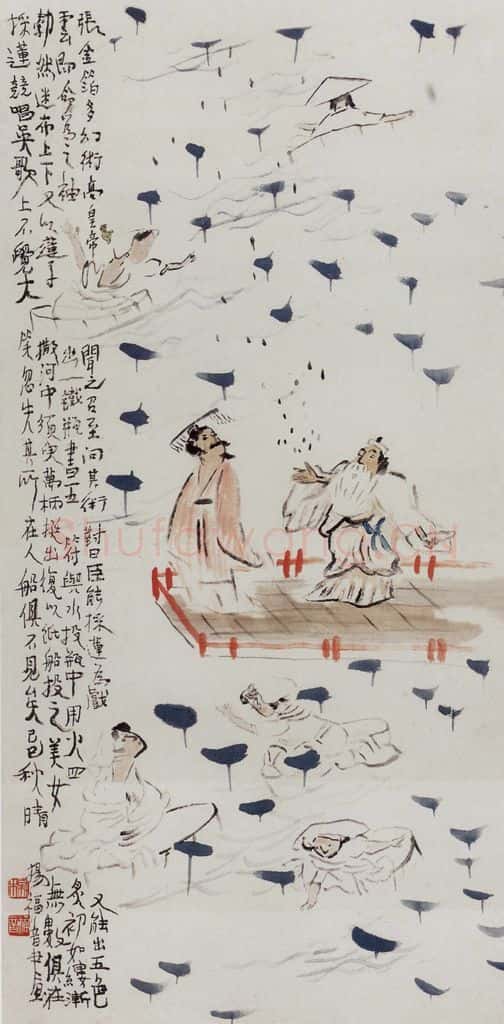 張金箔多幻術高皇帝
聞之召至問其術對曰臣能採蓮為戲
又能出五色
雲即命為之袖
出一鐵瓶書五符與水投瓶中用火四
炙初如縷漸
勃然迷布上下又以蓮子
撒河中須臾萬柄挺出復以紙船投之美女
無數俱在
採蓮競唱吳歌上不覺大
笑忽失其所在人船俱不見矣 秋晴
楊福音 畫